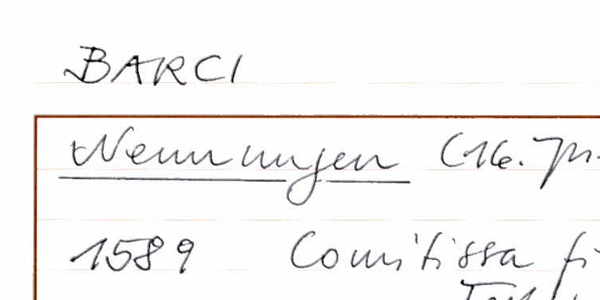 BARCI
Nennungen (16.
1589 Comitissa fi